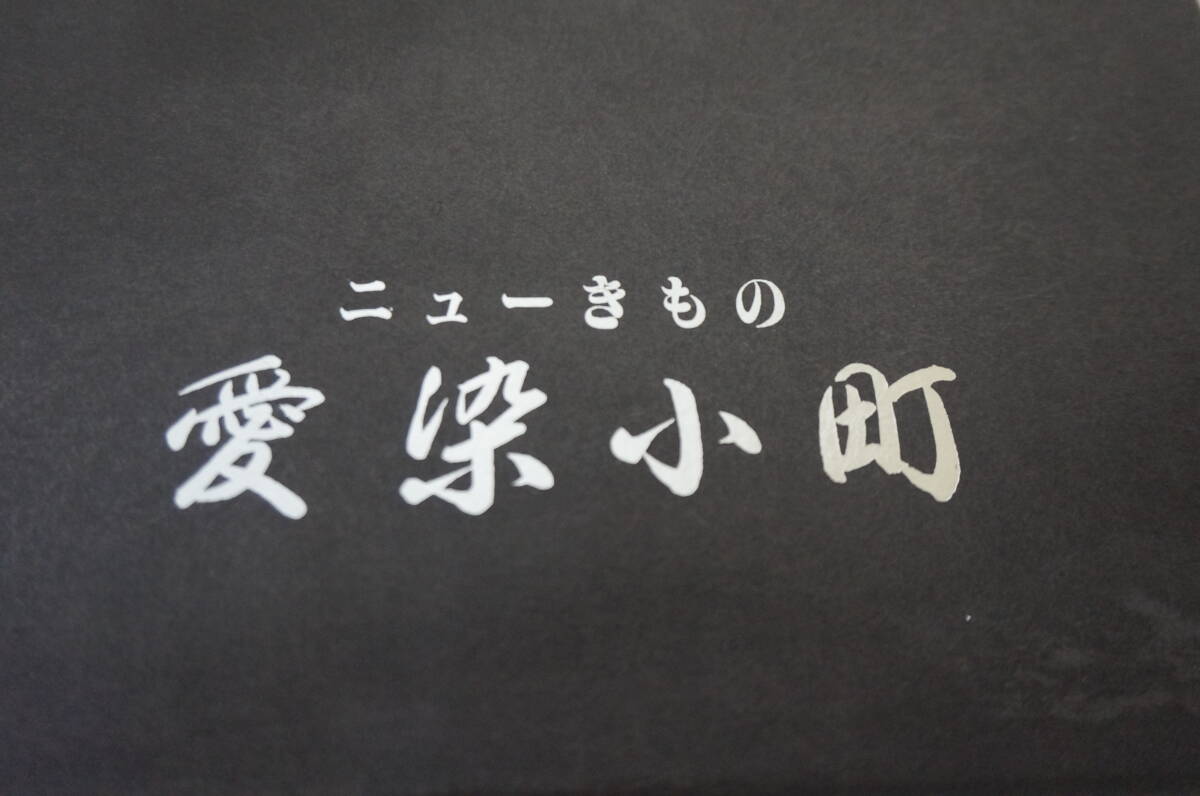 ニューきもの
愛染小町